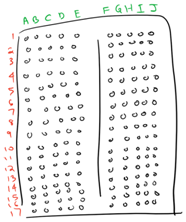 A B C D E F G H I J
1
2
3
4
5
6
7
8
9
10
11
12
13
14
15
16
17